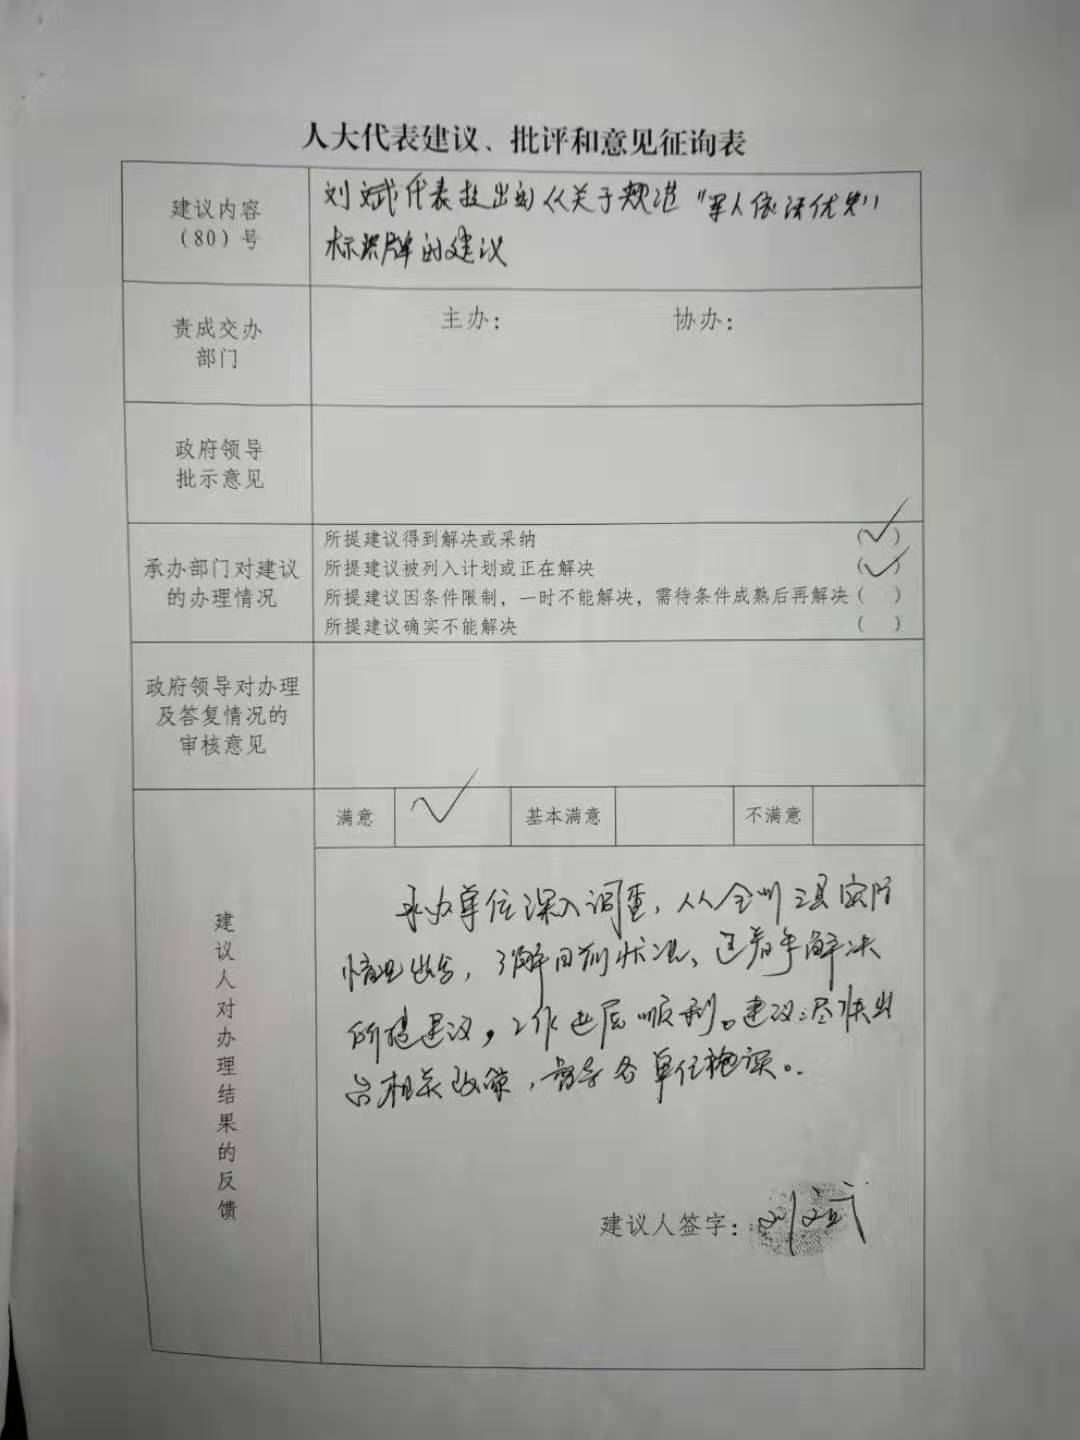 人大代表建议、批评和意见征询表
建议内容
（80）号
刘斌代表提出的《关于规范“军人依法优先”
标识牌的建议
责成交办
部门
主办：
协办：
政府领导
批示意见
承办部门对建议
的办理情况
所提建议得到解决或采纳 （✓）
所提建议被列入计划或正在解决 （✓）
所提建议因条件限制，一时不能解决，需待条件成熟后再解决（ ）
所提建议确实不能解决 （ ）
政府领导对办理
及答复情况的
审核意见
满意 ✓ 基本满意 不满意
建议人对办理结果的反馈
承办单位深入调查，从全州三县实际
情况出发，了解目前状况、已着手解决
所提建议，工作进展顺利。建议：尽快出
台相关政策，督导各单位
建议人签字：刘斌